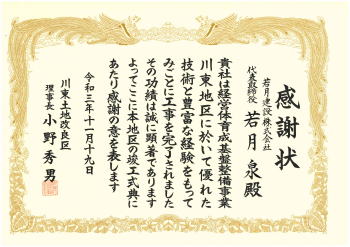 感謝状
若月建設株式会社
代表取締役 若月泉殿
貴社は経営体育成基盤整備事業
川東地区に於いて優れた
技術と豊富な経験をもって
みごとに工事を完了されました
その功績は誠に顕著であります
よってここに本地区の竣工式典に
あたり感謝の意を表します
令和三年十一月十九日
川東土地改良区
理事長 小野秀男